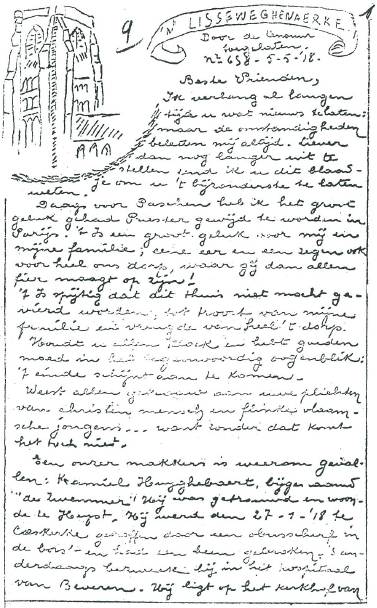 'N LISSEWEGHENAERKE
Door de Censuur
weglaten.
9
Nr 658 - 5-5-'18.
Beste Vrienden,
Ik verlang al langen
tijd u wat nieuws te laten:
maar de omstandigheden
beletten mij altijd. Liever
dan nog langer uit te
stellen zend ik u dit blaad-
je om u 't bijzonderste te laten
weten.
Daags voor Paschen heb ik het groot
geluk gehad Priester gewijd te worden in
Parijs. 't Is een groot geluk voor mij en
mijne familie; eene eer en een zegen ook
voor heel ons dorp, waar gij dan allen
fier moogt op zijn!
't Is spijtig dat dit thuis niet mocht ge-
vierd worden, tot troost van mijne
familie en vreugde van heel 't dorp.
Houdt u allen kloek en hebt goeden
moed in het tegenwoordig oogenblik:
't einde schijnt aan te komen.
Weest allen getrouw aan uwe plichten
van christen mensch en flinke vlaam-
sche jongens... want zonder dat komt
het toch niet.
Een onzer makkers is weerom geval-
len: Kamiel Huyghebaert, bijgenaamd
"de Zwemmer". Hij was getrouwd en woon-
de te Heyst. Hij werd den 27-1-'18 te
Caeskerke getroffen door een obusscherf in
de borst en had een been gebroken. 's an-
derdaags bezweek hij in het hospitaal
van Beveren. Hij ligt op het kerkhof van